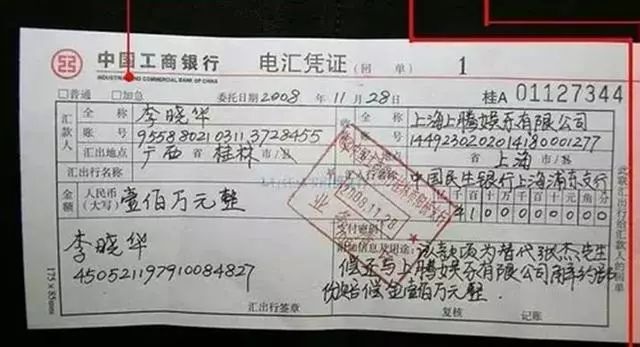 中国工商银行 电汇凭证（回单） 1
INDUSTRIAL AND COMMERCIAL BANK OF CHINA
□普通 □加急 委托日期2008年11月28日 桂A01127344
汇款人
全称 李晓华
账号 9558802103113728455
汇出地点 广西省桂林市/县
汇出行名称
全称 上海上腾娱乐有限公司
1449230202014180001277
省上海市
中国民生银行上海浦东支行
金额 人民币（大写） 壹佰万元整
千百十元角分
2008.11.28
业务
支付密码
李晓华
附加信息及用途：该款项为替代张杰先生
偿还与上腾娱乐有限公司解约部
份赔偿金壹佰万元整.
汇出行签章
复核 记账
此联汇出行给汇款人的回单